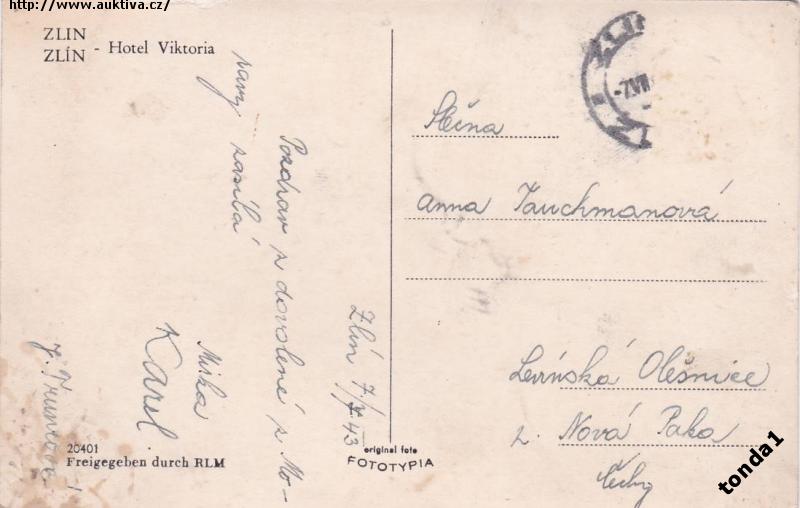 http://www.auktiva.cz/
ZLIN
ZLÍN - Hotel Viktoria
Zlín 7/7 43
Pozdrav z dovolené z Mo-
ravy zasílá
Mirka
Karel
20401
Freigegeben durch RLM
original foto
FOTOTYPIA
ZLIN
-7.VII
Slečna
Anna Tauchmanová
Levínská Olešnice
p. Nová Paka
Čechy
tonda1